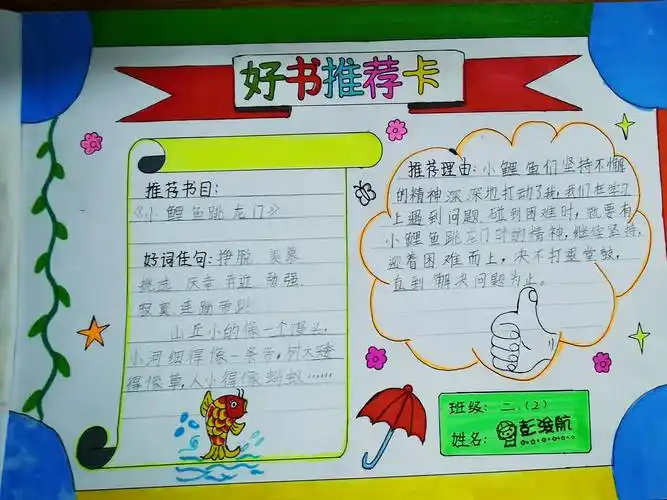 好书推荐卡
推荐书目:
《小鲤鱼跳龙门》
好词佳句: 挣脱 羡慕
挑选 庆幸 奔近 勉强
寂寞 连蹦带跳
山丘小的像一个馒头,
小河细得像一条带,树大矮
得像草,人小得像蚂蚁……
推荐理由:小鲤鱼们坚持不懈
的精神深深地打动了我,我们在学习
上遇到问题碰到困难时,就要有
小鲤鱼跳龙门时的精神,继续坚持,
迎着困难而上,决不打退堂鼓,
直到解决问题为止。
班级:二.(2)
姓名:彭浚航